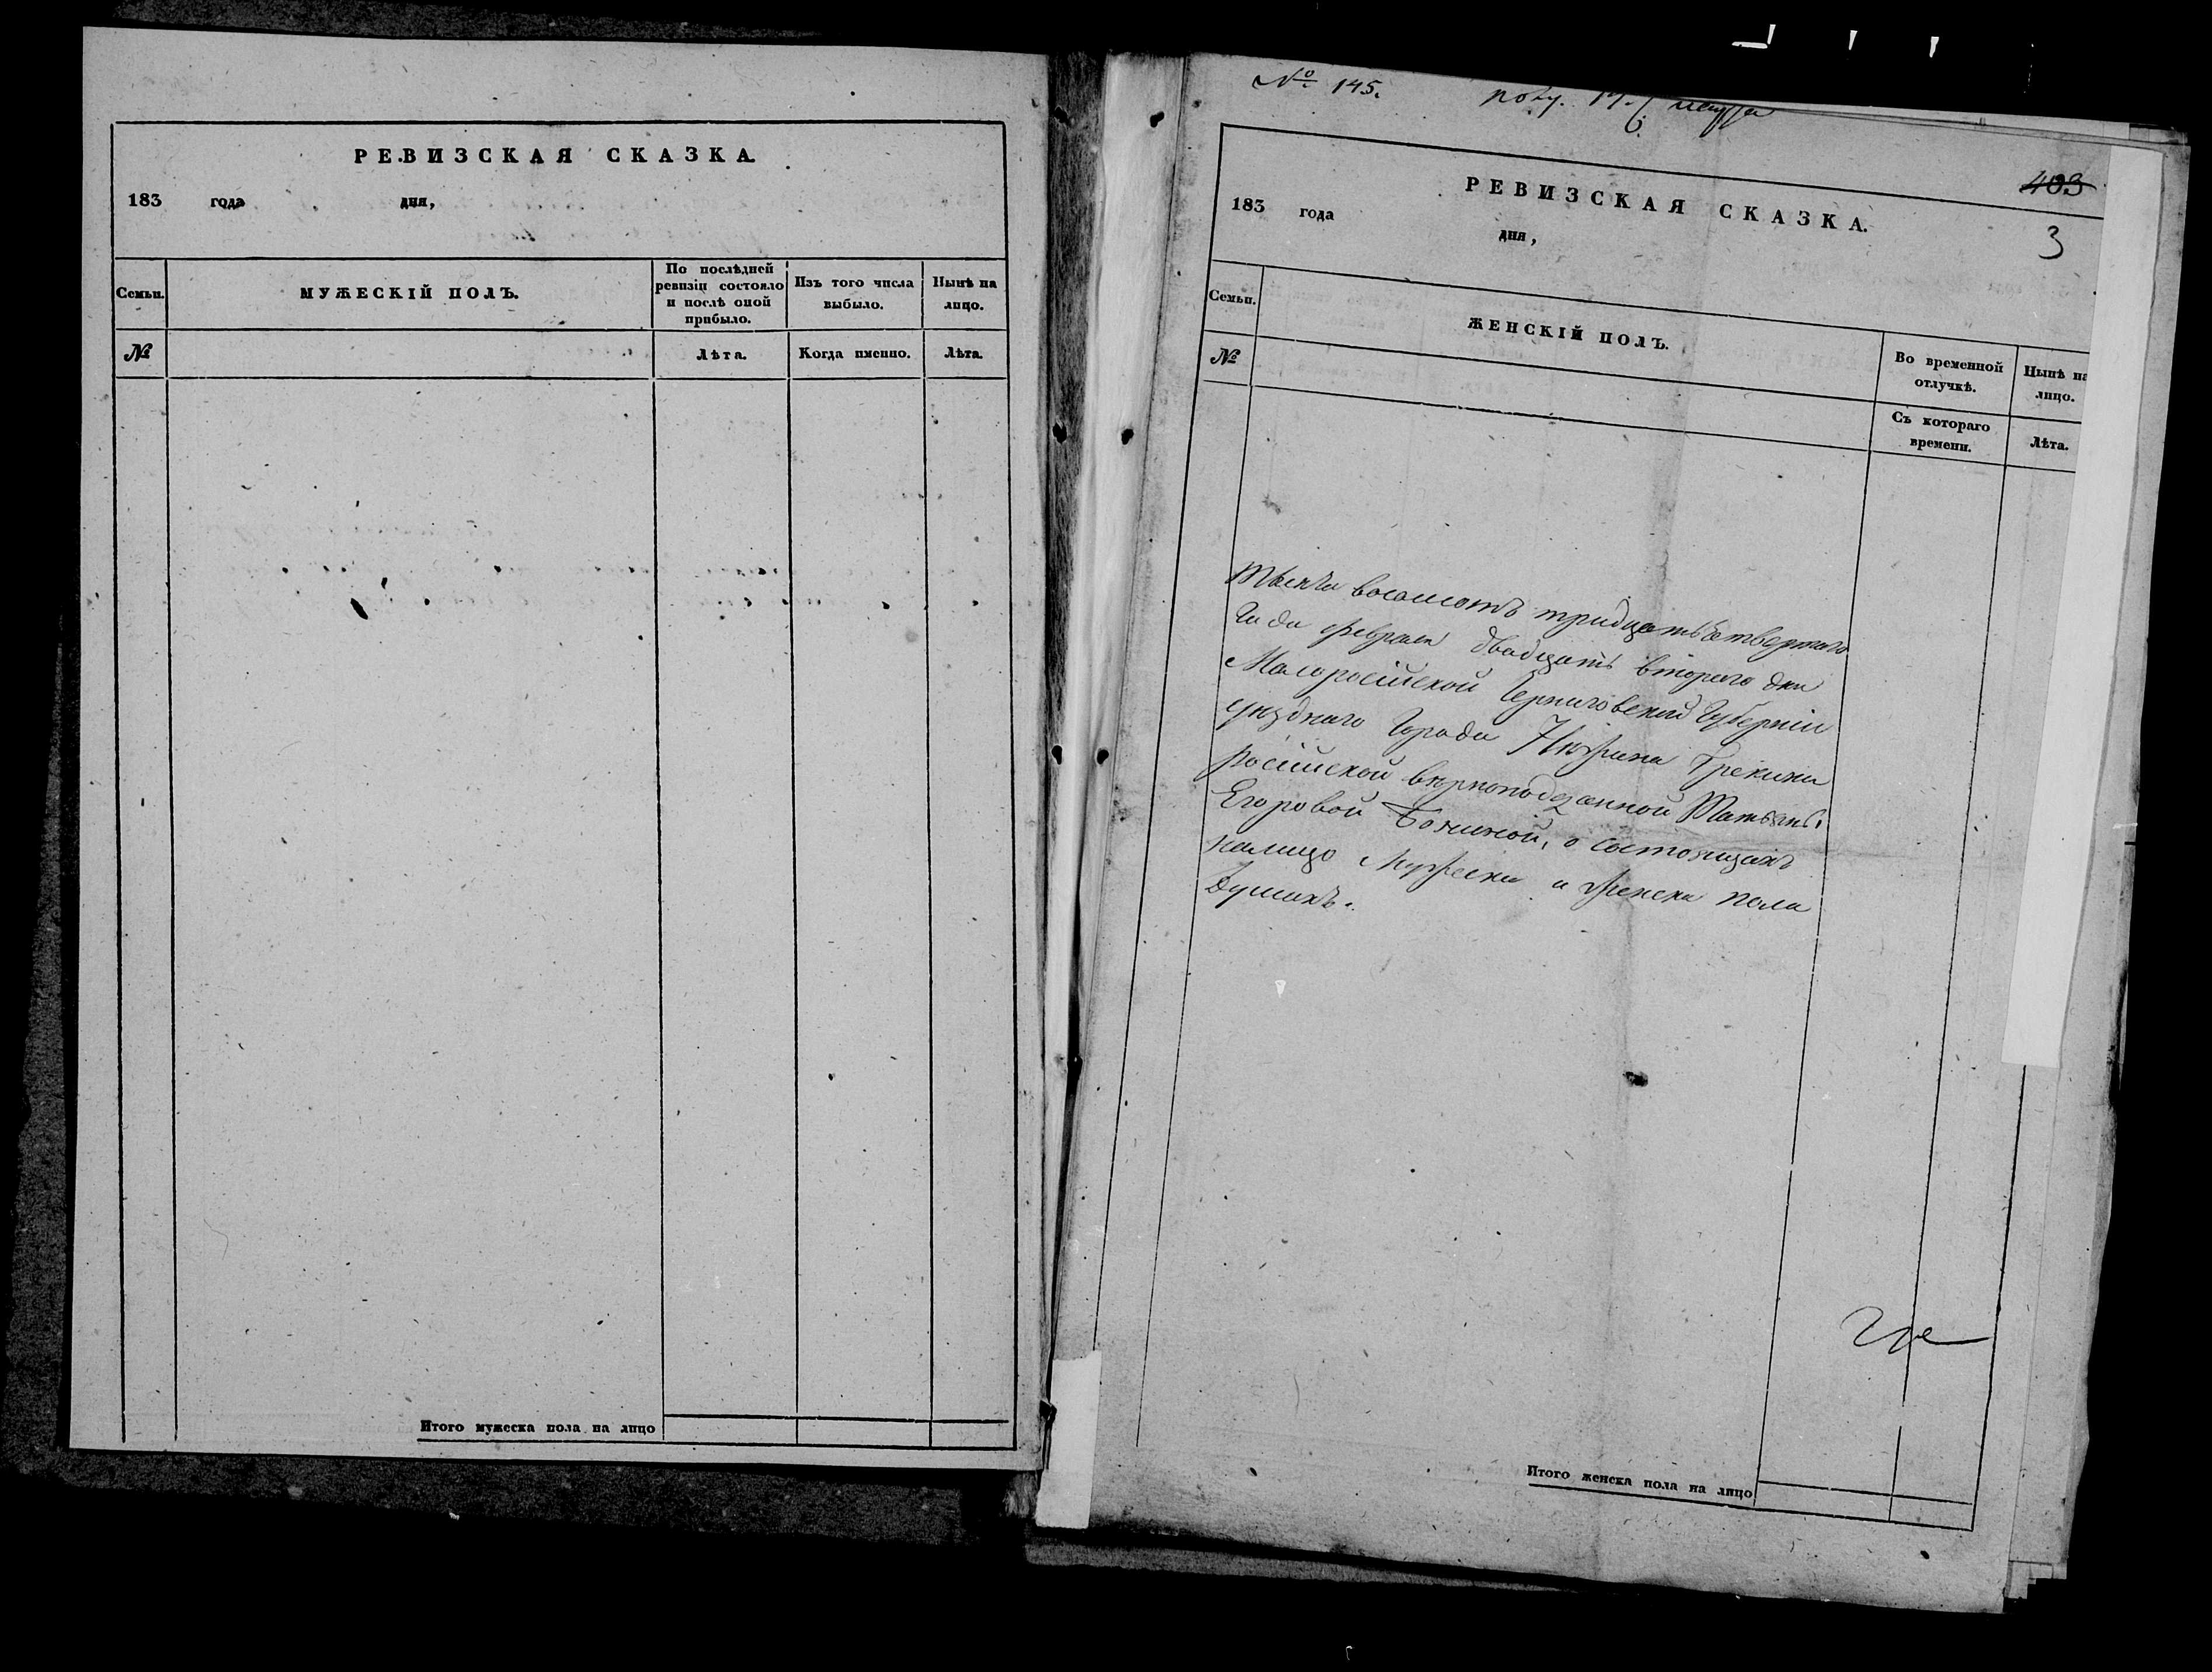 РЕВИЗСКАЯ СКАЗКА.
183 года дня,
Семьи.
МУЖЕСКІЙ ПОЛЪ.
По послѣдней ревизіи состояло и послѣ оной прибыло.
Изъ того числа выбыло.
Нынѣ на лицо.
№
Лѣта.
Когда именно.
Лѣта.
Итого мужеска пола на лицо
№ 145.
403
3
РЕВИЗСКАЯ СКАЗКА.
183 года дня,
Семьи.
ЖЕНСКІЙ ПОЛЪ.
Во временной отлучкѣ.
Нынѣ на лицо.
№
Съ котораго времени.
Лѣта.
Тысяча восемсотъ тридцать четвертаго
Года февраля двадцать втораго дня
Малоросійской Черниговской Губерніи
уѣзднаго Города Нѣжина Грекини
російской вѣрноподданной Татьяны
Егоровой о состоящихъ
налицо Мужеска и женска пола
Душахъ.
Итого женска пола на лицо